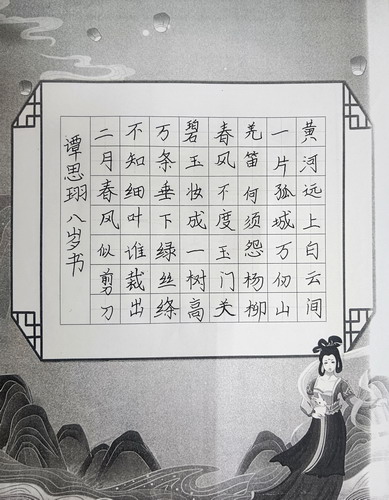 黄河远上白云间
一片孤城万仞山
羌笛何须怨杨柳
春风不度玉门关
碧玉妆成一树高
万条垂下绿丝绦
不知细叶谁裁出
二月春风似剪刀
谭思珝八岁书